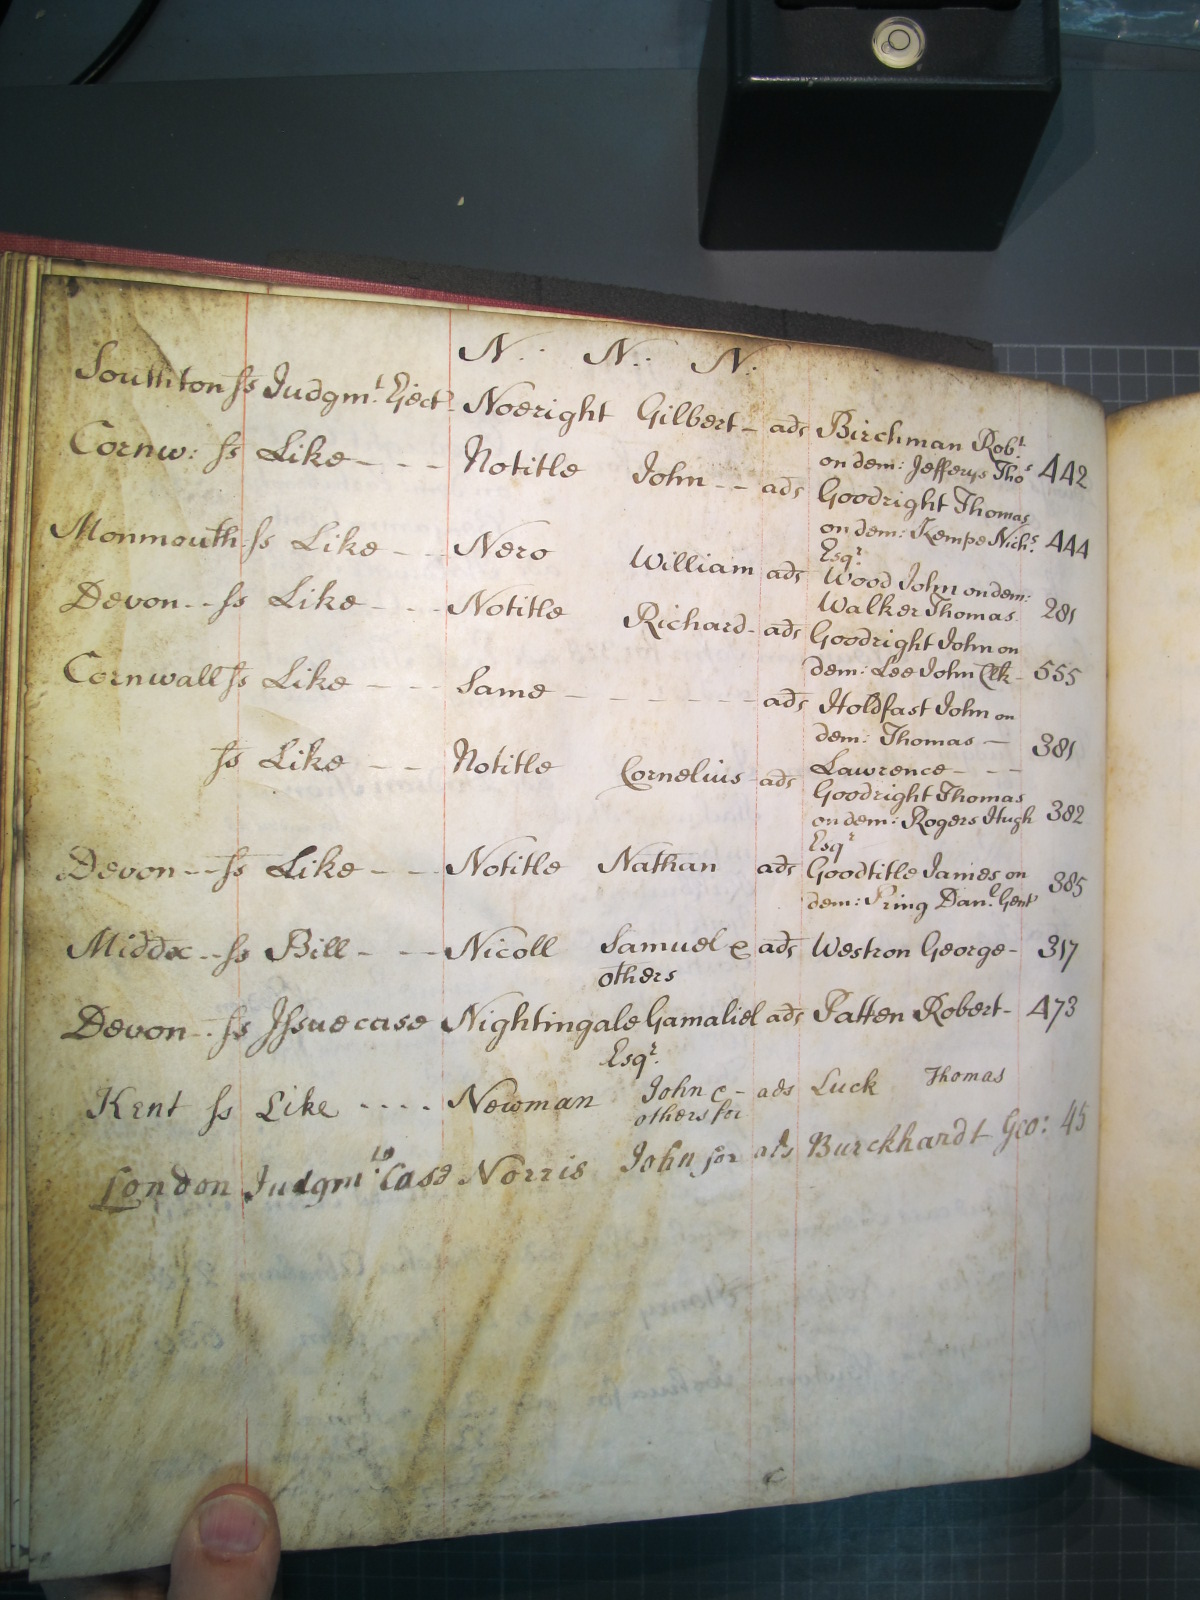 N: N: N:
Southton ss Judgmt. Eject. Noeright Gilbert - ads Birchman Robt.
on dem: Jefferys Thos 442
Cornw: ss Like - - - Notitle John - - ads Goodright Thomas
on dem: Kempe Nichs. 444
Esqr.
Monmouth ss Like - - Nero William ads Wood John on dem:
Walker Thomas 281
Devon - - ss Like - - - Notitle Richard - ads Goodright John on
dem: Lee John Clk - 555
Cornwall ss Like - - - Same - - - - - - ads Holdfast John on
dem: Thomas - 381
Lawrence - - -
ss Like - - - Notitle Cornelius ads Goodright Thomas
on dem: Rogers Hugh 382
Esqr
Devon - - ss Like - - - Notitle Nathan ads Goodtitle James on
dem: Pring Danl. Gent 385
Middx - - ss Bill - - - - Nicoll Samuel & ads Westron George - 317
others
Devon - ss Issue case Nightingale Gamaliel ads Patten Robert - 473
Esqr.
Kent ss Like - - - - Newman John & - ads Luck Thomas
others for
London Judgmt. Case Norris John for ads Burckhardt Geo: 45